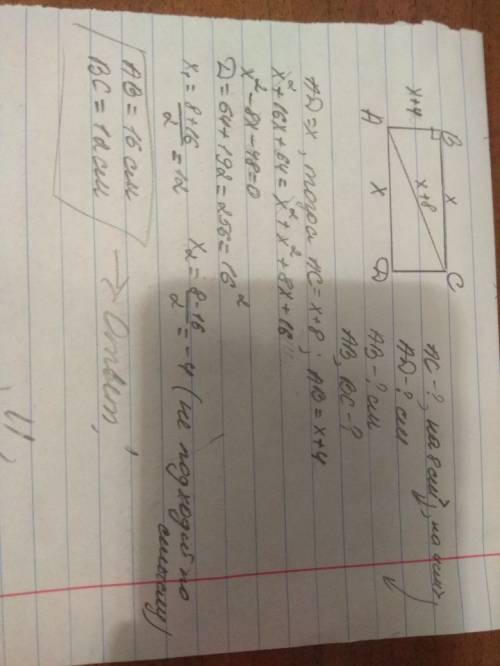 B x C
x+4
x+8
A x D
AC - ?, на 8 см >, на 4 см >,
AD - ? см
AB - ? см
AB, BC - ?
AD = x, тогда AC = x+8; AB = x+4
x² + 16x + 64 = x² + x² + 8x + 16
x² - 8x - 48 = 0
D = 64 + 192 = 256 = 16²
x₁ = (8+16)/2 = 12 x₂ = (8-16)/2 = -4 (не подходит по
смыслу)
AB = 16 см
BC = 12 см
→ Ответ